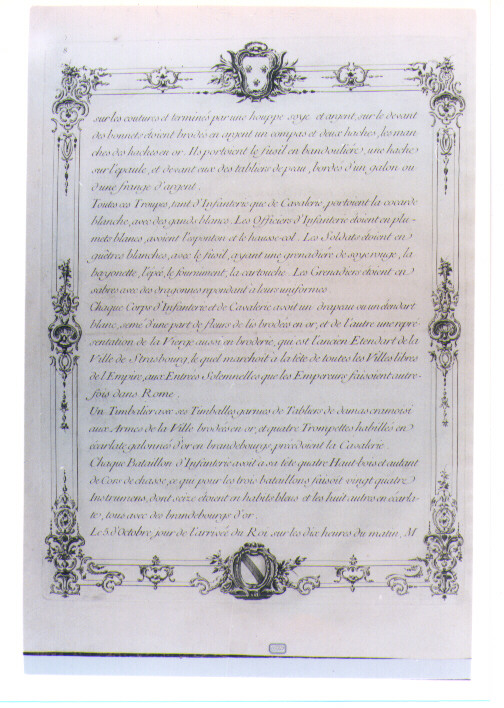 sur les coutures et terminés par une houppe soye et argent, sur le devant
des bonnets étoient brodés en argent un compas et deux haches, les man
ches des haches en or. Ils portoient le fusil en bandouliere, une hache
sur l'épaule, et devant eux des tabliers de peau, bordés d'un galon ou
d'une frange d'argent.
Toutes ces Troupes, tant d'Infanterie que de Cavalerie, portoient la cocarde
blanche, avec des gands blancs. Les Officiers d'Infanterie étoient en plu-
mets blancs, avoient l'esponton et le hausse-col. Les Soldats étoient en
guêtres blanches, avec le fusil, ayant une grenadiére de soye rouge, la
bayonette, l'épée, le fourniment, la cartouche. Les Grenadiers étoient en
sabres avec des dragonnes repondant à leurs uniformes.
Chaque Corps d'Infanterie et de Cavalerie avoit un drapeau ou un étendart
blanc, semé d'une part de fleurs de lis brodées en or, et de l'autre une repré
sentation de la Vierge aussi en broderie, qui est l'ancien Etendart de la
Ville de Strasbourg, lequel marchoit à la tête de toutes les Villes libres
de l'Empire, aux Entrées Solennelles que les Empereurs faisoient autre-
fois dans Rome.
Un Timbalier aux ses Timballes garnies de Tabliers de damas cramoisi
aux Armes de la Ville brodées en or, et quatre Trompettes habillés en
écarlate galonné d'or en brandebourgs, précédoient la Cavalerie.
Chaque Bataillon d'Infanterie avoit a sa tête quatre Haut-bois et autant
de Cors de chasse, ce qui pour les trois bataillons faisoit vingt quatre
Instrumens, dont seize étoient en habits bleus et les huit autres en écarla-
te, tous avec des brandebourgs d'or.
Le 5 d'Octobre, jour de l'arrivée du Roi sur les dix heures du matin, M